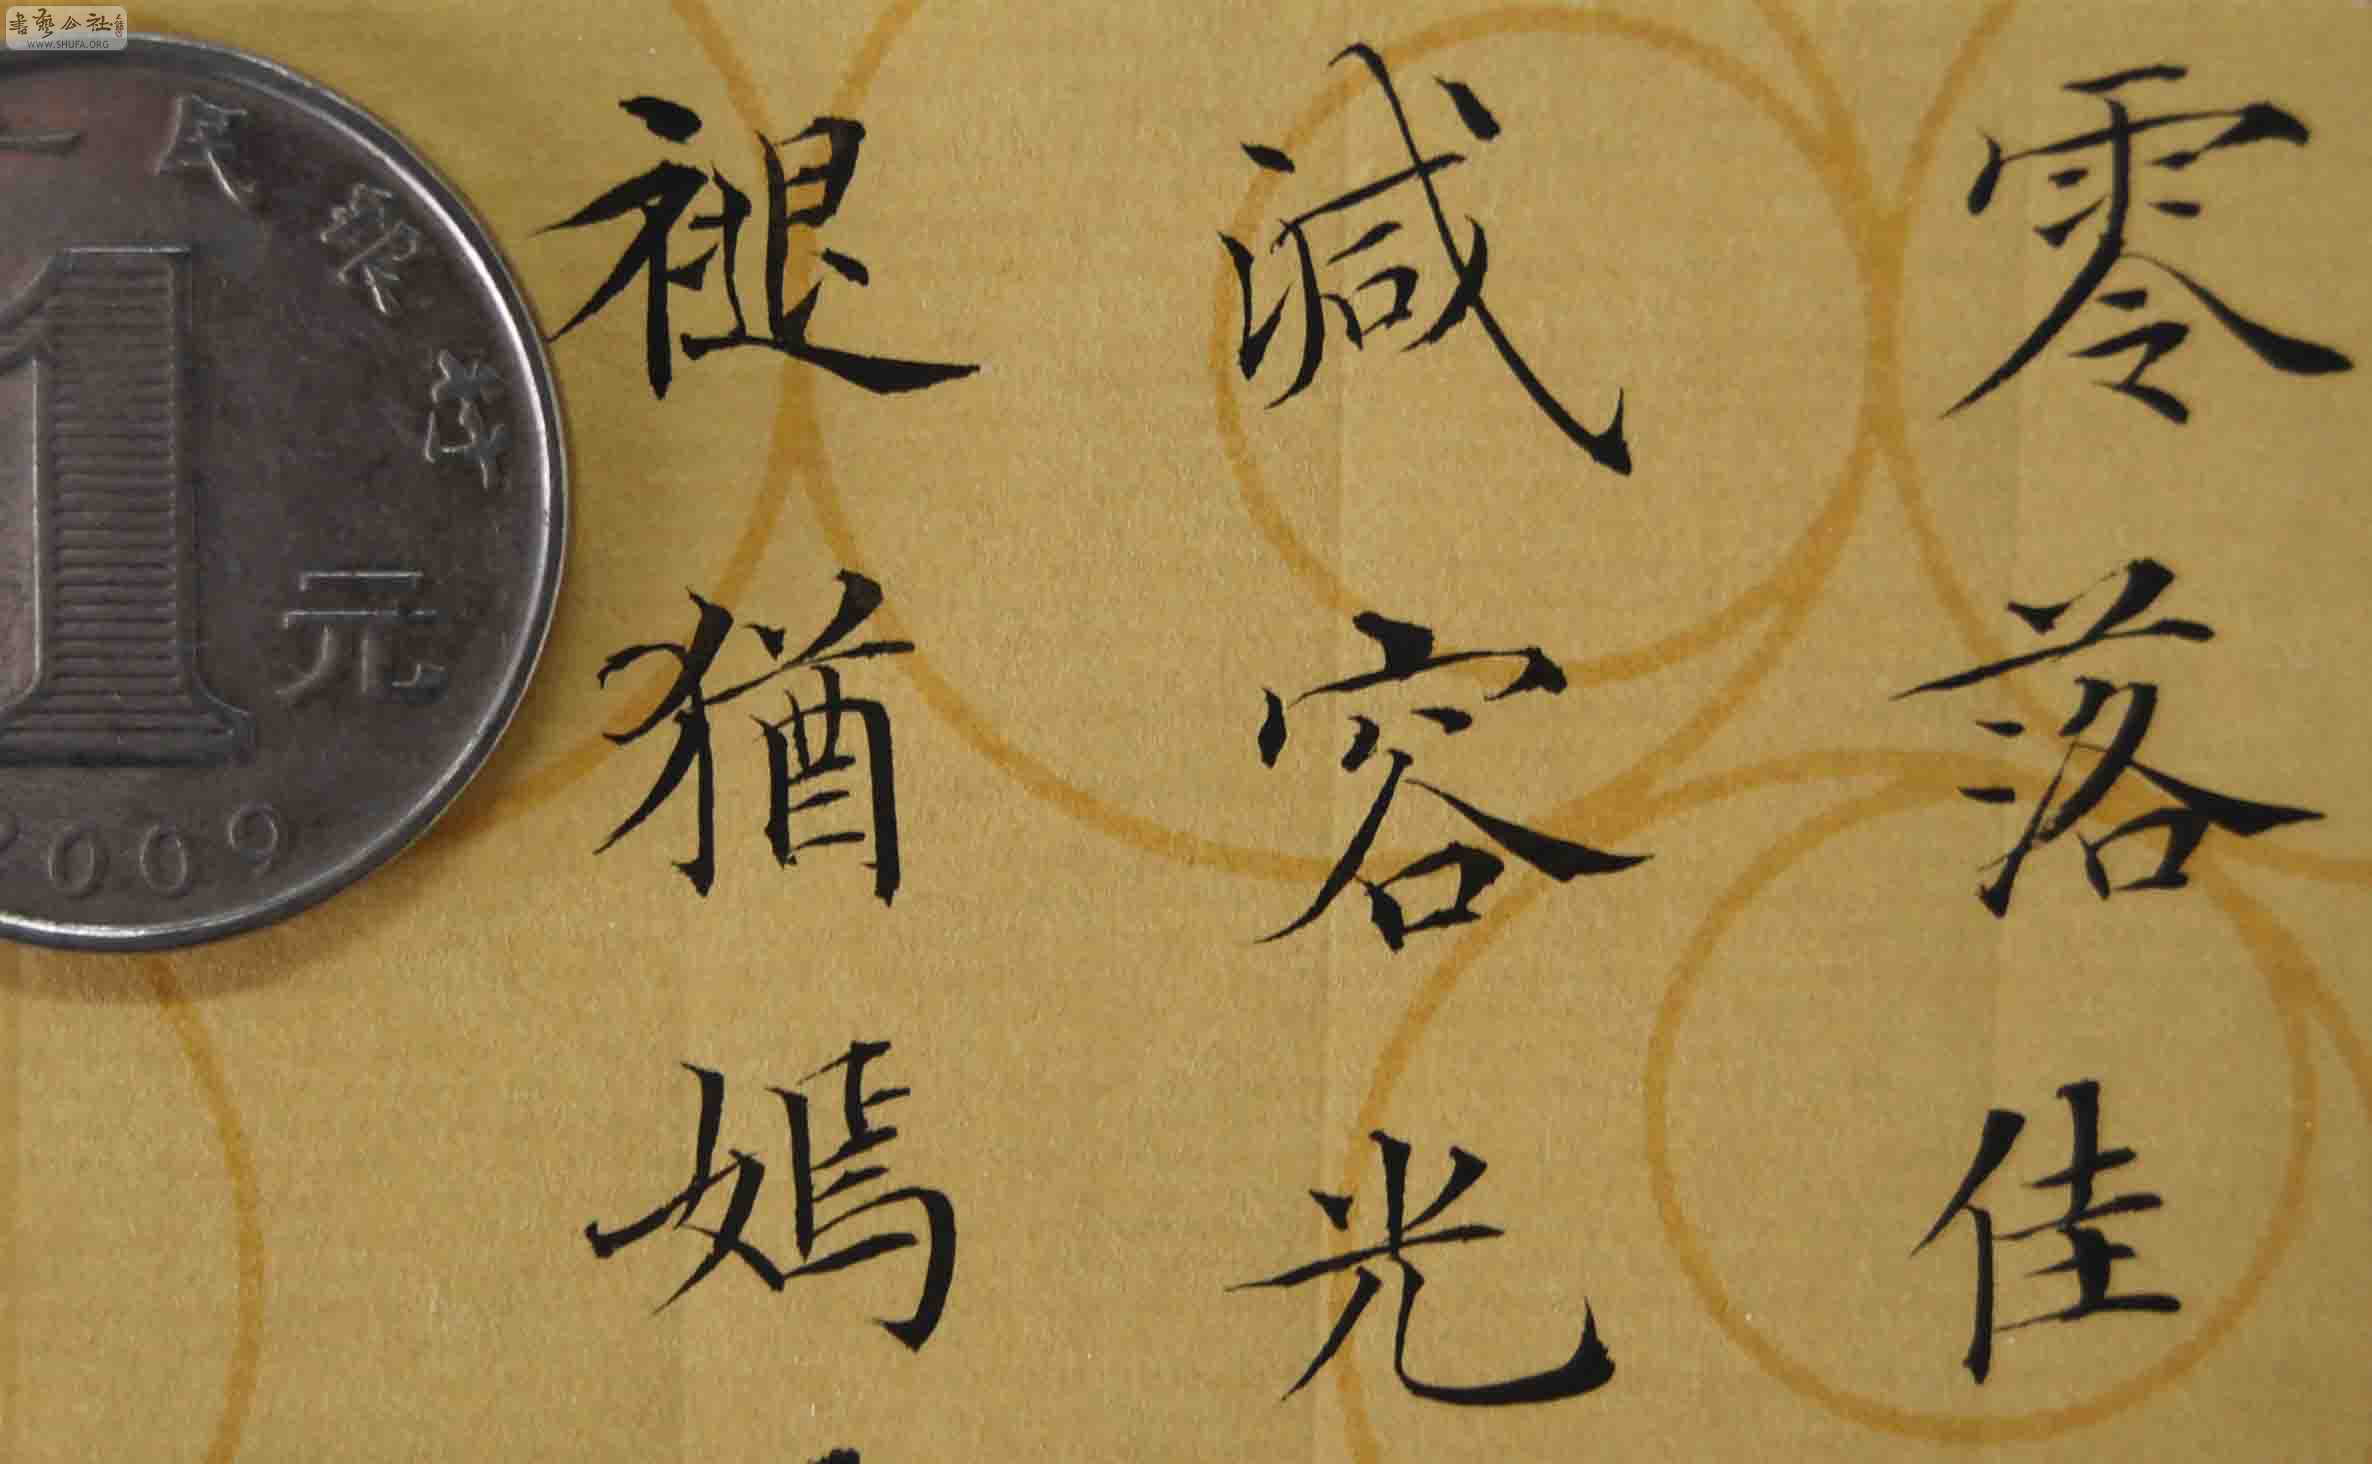 零落佳
減容光
褪猶嫣
民银行
1
元
2009
書藝公社
WWW.SHUFA.ORG